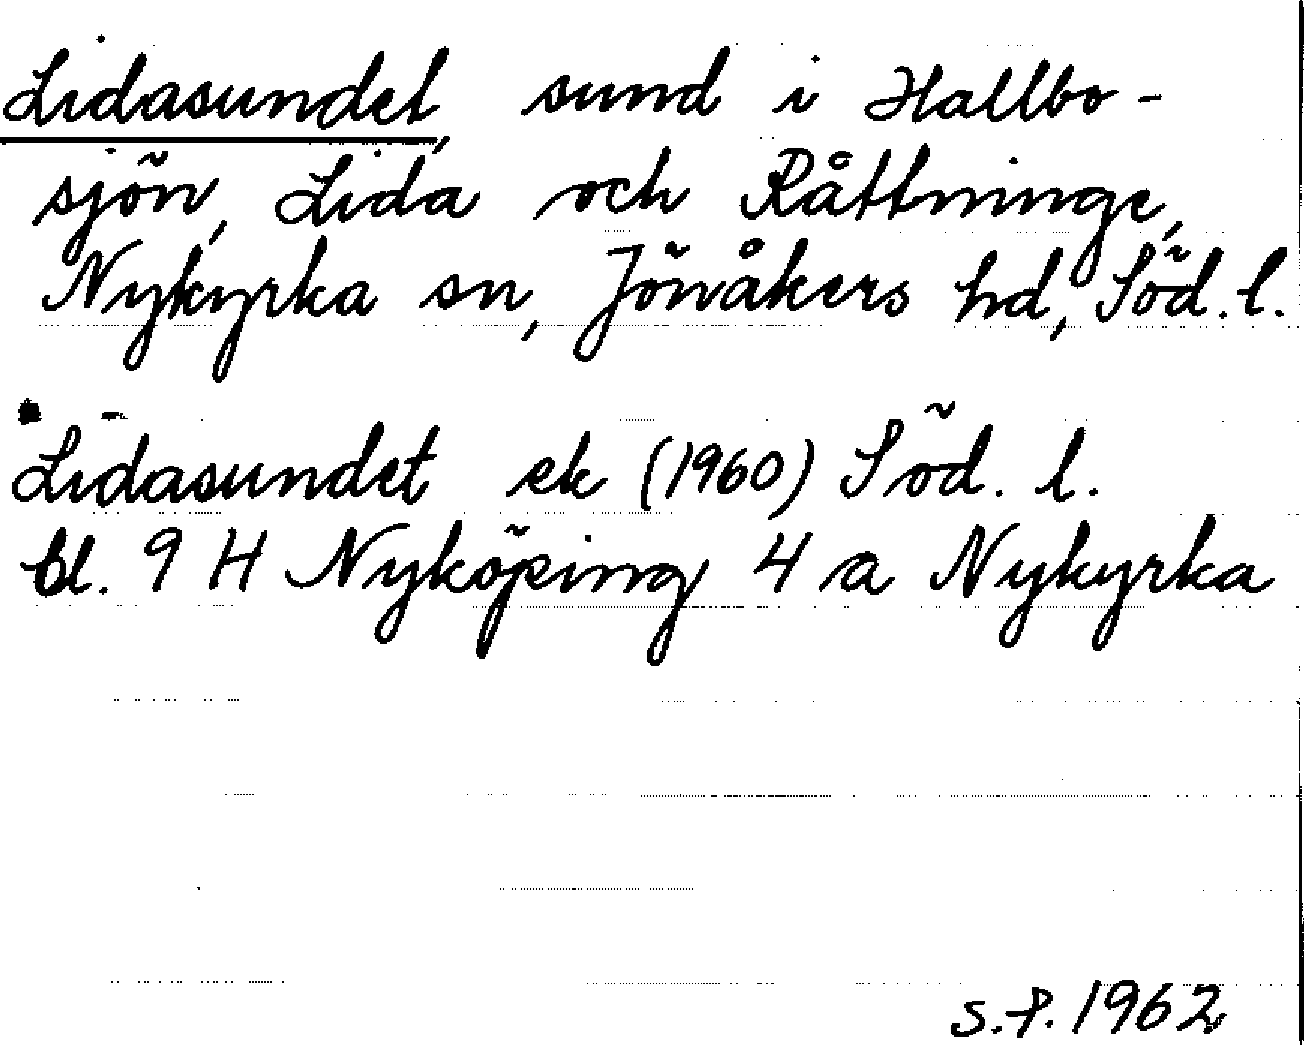 Lidasundet, sund i Hallbo-
sjön, Lida och Råttninge,
Nykyrka sn, Jönåkers hd, Söd. l.
Lidasundet ek (1960) Söd. l.
bl. 9 H Nyköping 4 a Nykyrka
S.P. 1962